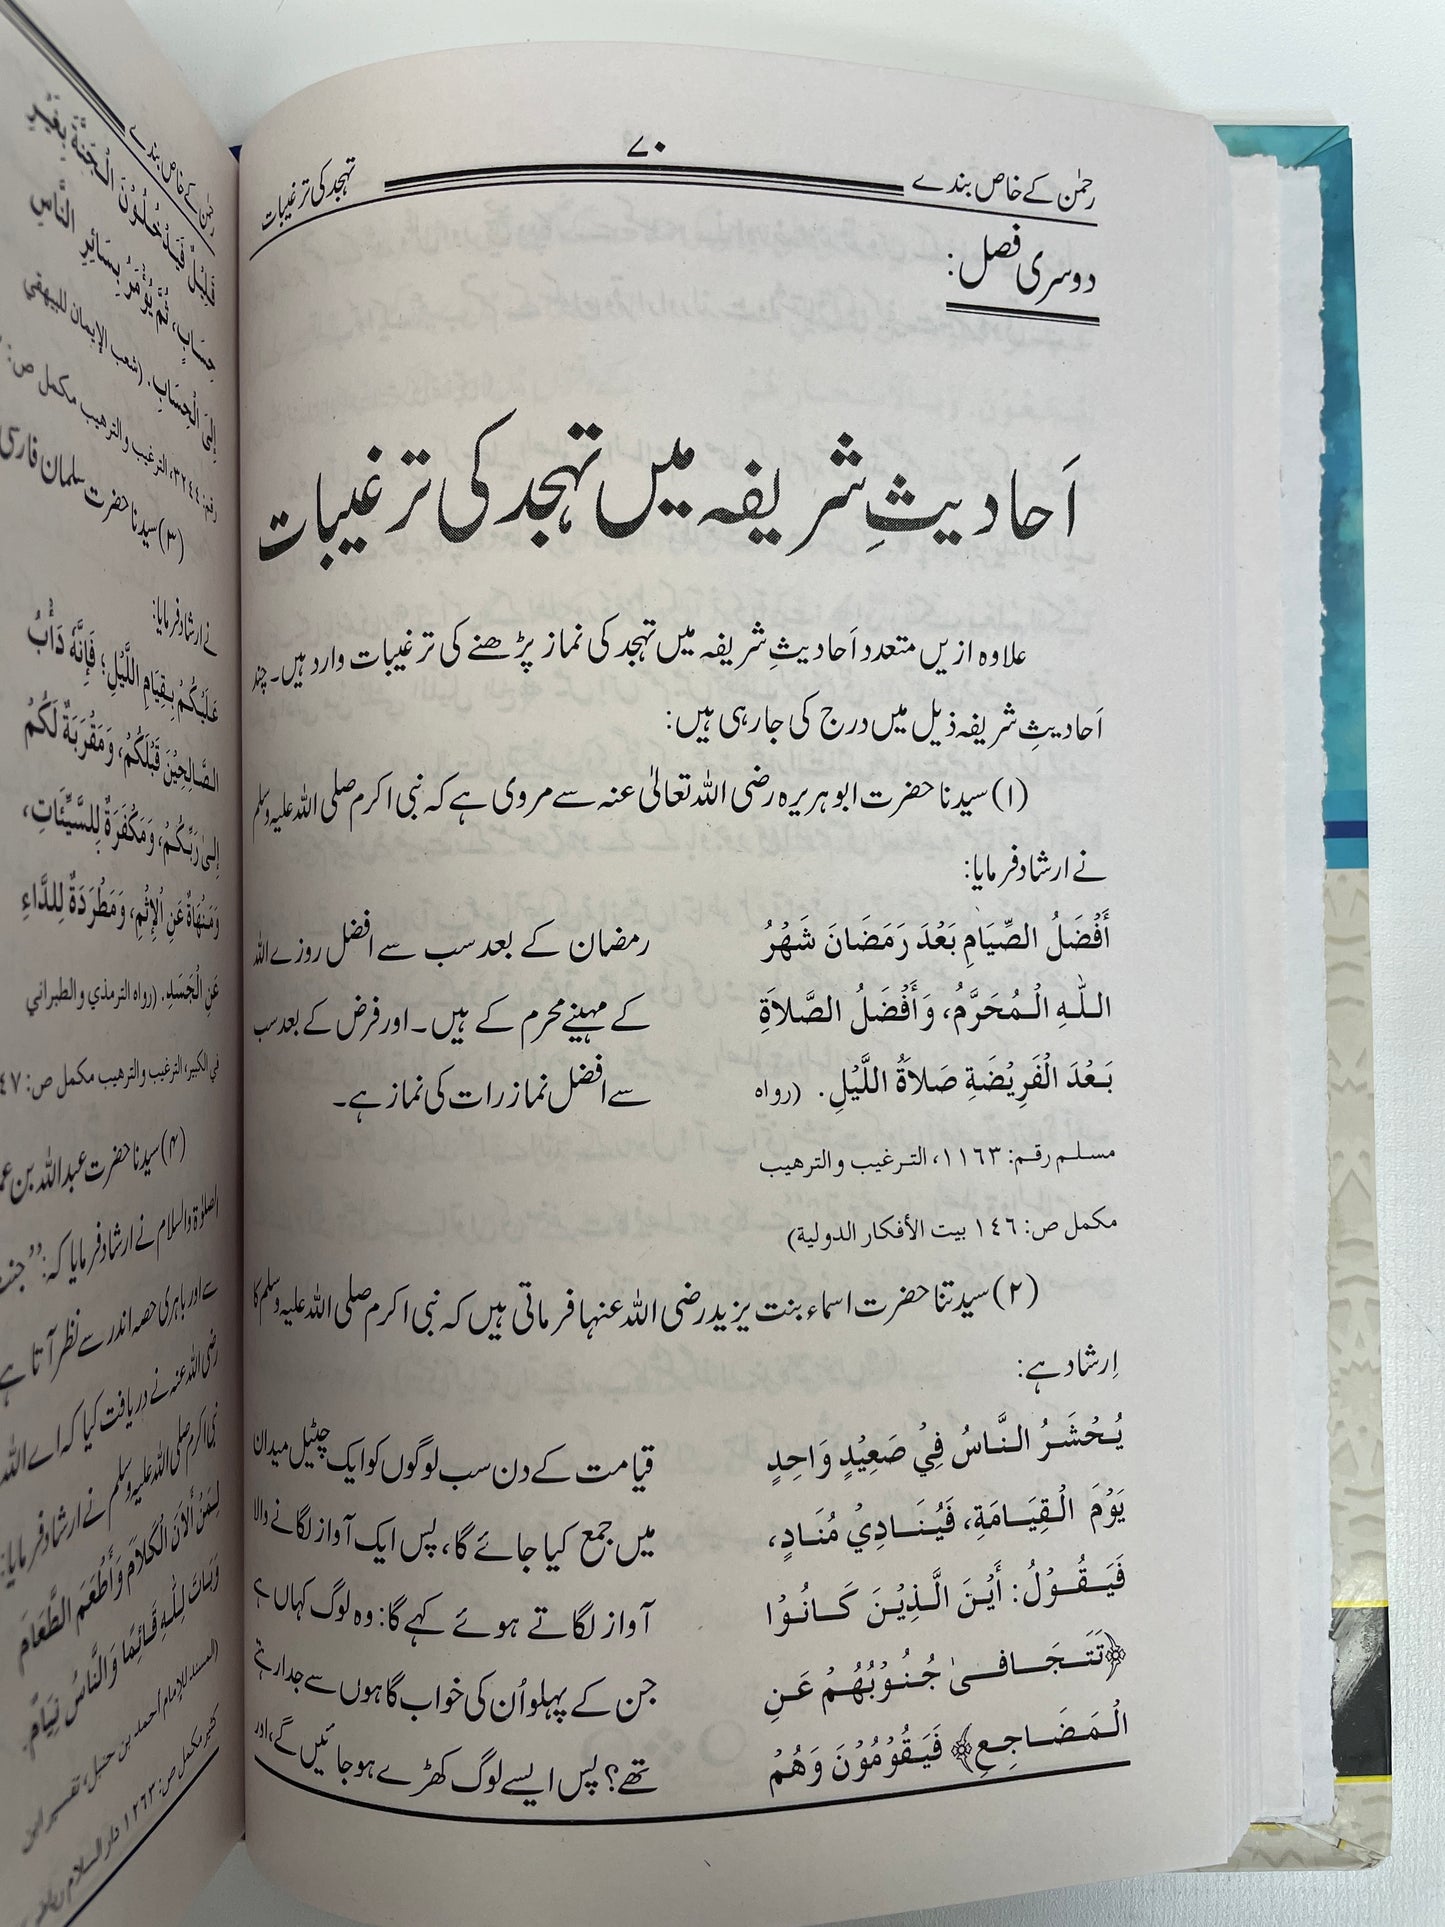 رحمٰن کے خاص بندے
۷۰
تہجد کی ترغیبات
دوسری فصل:
اَحادیثِ شریفہ میں تہجد کی ترغیبات
علاوہ ازیں متعدد اَحادیثِ شریفہ میں تہجد کی نماز پڑھنے کی ترغیبات وارد ہیں۔ چند
اَحادیثِ شریفہ ذیل میں درج کی جارہی ہیں:
(۱) سیدنا حضرت ابوہریرہ رضی اللہ تعالیٰ عنہ سے مروی ہے کہ نبی اکرم صلی اللہ علیہ وسلم
نے ارشاد فرمایا:
أَفْضَلُ الصِّيَامِ بَعْدَ رَمَضَانَ شَهْرُ
اللّٰهِ الْمُحَرَّمُ، وَأَفْضَلُ الصَّلاَةِ
بَعْدَ الْفَرِيْضَةِ صَلاَةُ اللَّيْلِ. (رواه
مسلم رقم: ١١٦٣، الترغيب والترهيب
مكمل ص: ١٤٦ بيت الأفكار الدولية)
رمضان کے بعد سب سے افضل روزے اللہ
کے مہینے محرم کے ہیں۔ اور فرض کے بعد سب
سے افضل نماز رات کی نماز ہے۔
(۲) سیدتنا حضرت اسماء بنت یزید رضی اللہ عنہا فرماتی ہیں کہ نبی اکرم صلی اللہ علیہ وسلم کا
اِرشاد ہے:
يُحْشَرُ النَّاسُ فِيْ صَعِيْدٍ وَاحِدٍ
يَوْمَ الْقِيَامَةِ، فَيُنَادِيْ مُنَادٍ،
فَيَقُوْلُ: أَيْنَ الَّذِيْنَ كَانُوْا
﴿تَتَجَافىٰ جُنُوْبُهُمْ عَنِ
الْمَضَاجِعِ﴾ فَيَقُوْمُوْنَ وَهُمْ
قیامت کے دن سب لوگوں کو ایک چٹیل میدان
میں جمع کیا جائے گا، پس ایک آواز لگانے والا
آواز لگاتے ہوئے کہے گا: وہ لوگ کہاں؟
جن کے پہلو اُن کی خواب گاہوں سے جدا رہتے
تھے؟ پس ایسے لوگ کھڑے ہوجائیں گے، اور
رحمٰن کے خاص بندے
قَلِيْلٌ فَيَدْخُلُوْنَ الْجَنَّةَ بِغَيْرِ
حِسَابٍ، ثُمَّ يُؤْمَرُ بِسَائِرِ النَّاسِ
إِلىَ الْحِسَابِ. (شعب الإيمان للبيهقي
رقم: ٣٢٤٤، الترغيب والترهيب مكمل ص:
(۳) سیدنا حضرت سلمان فارسی
نے ارشاد فرمایا:
عَلَيْكُمْ بِقِيَامِ اللَّيْلِ؛ فَإِنَّهُ دَأْبُ
الصَّالِحِيْنَ قَبْلَكُمْ، وَمَقْرَبَةٌ لَكُمْ
إِلىٰ رَبِّكُمْ، وَمَكْفَرَةٌ لِلسَّيِّئَاتِ،
وَمَنْهَاةٌ عَنِ الْإِثْمِ، وَمَطْرَدَةٌ لِلدَّاءِ
عَنِ الْجَسَدِ. (رواه الترمذي والطبراني
في الكبير، الترغيب والترهيب مكمل ص:
(۴) سیدنا حضرت عبداللہ بن
الصلوۃ والسلام نے ارشاد فرمایا کہ:
سے اور باہری حصہ اندر سے نظر آتا ہے
رضی اللہ عنہ نے دریافت کیا کہ اے اللہ
نبی اکرم صلی اللہ علیہ وسلم نے ارشاد فرمایا:
لِمَنْ أَلاَنَ الْكَلاَمَ وَأَطْعَمَ الطَّعَامَ
وَبَاتَ لِلّٰهِ قَائِمًا وَالنَّاسُ نِيَامٌ.
(المسند للإمام أحمد بن حنبل، تفسير ابن
كثير مكمل ص: ١٢٦٣ دار السلام